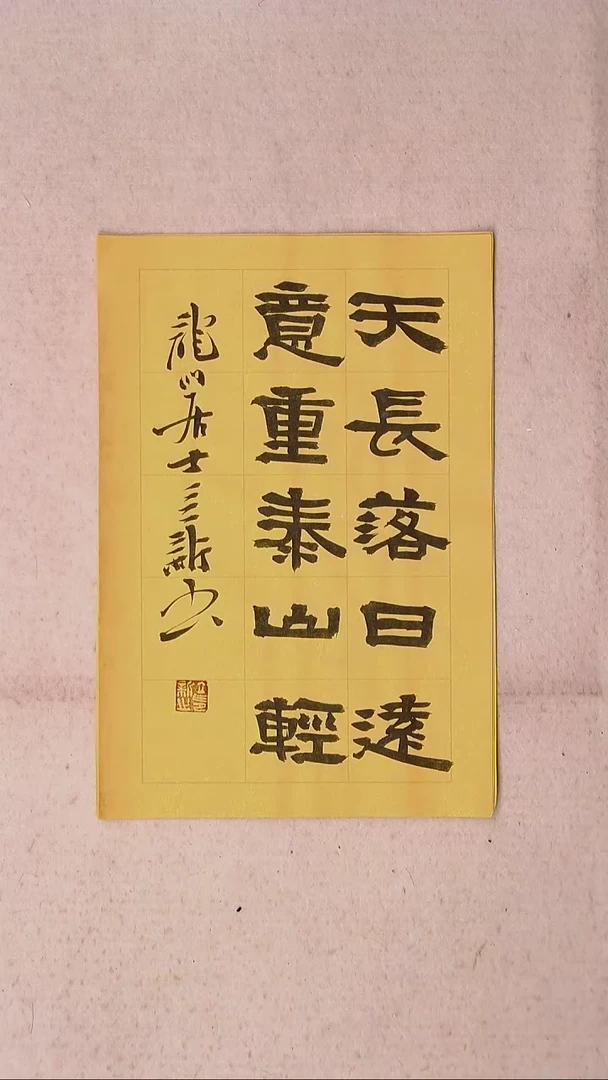 天長落日遠
意重泰山輕
龍山居士三新书